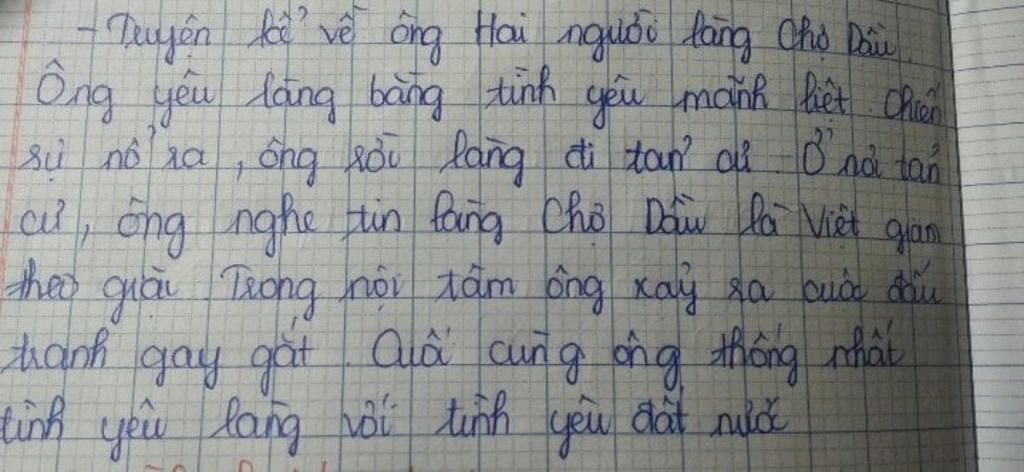 - Truyện kể về ông Hai người làng Chợ Dầu.
Ông yêu làng bằng tình yêu mãnh liệt. Chiến
sự nổ ra, ông rời làng đi tản cư. Ở nơi tản
cư, ông nghe tin làng Chợ Dầu là Việt gian
theo giặc. Trong nội tâm ông xảy ra cuộc đấu
tranh gay gắt. Cuối cùng ông thống nhất
tình yêu làng với tình yêu đất nước